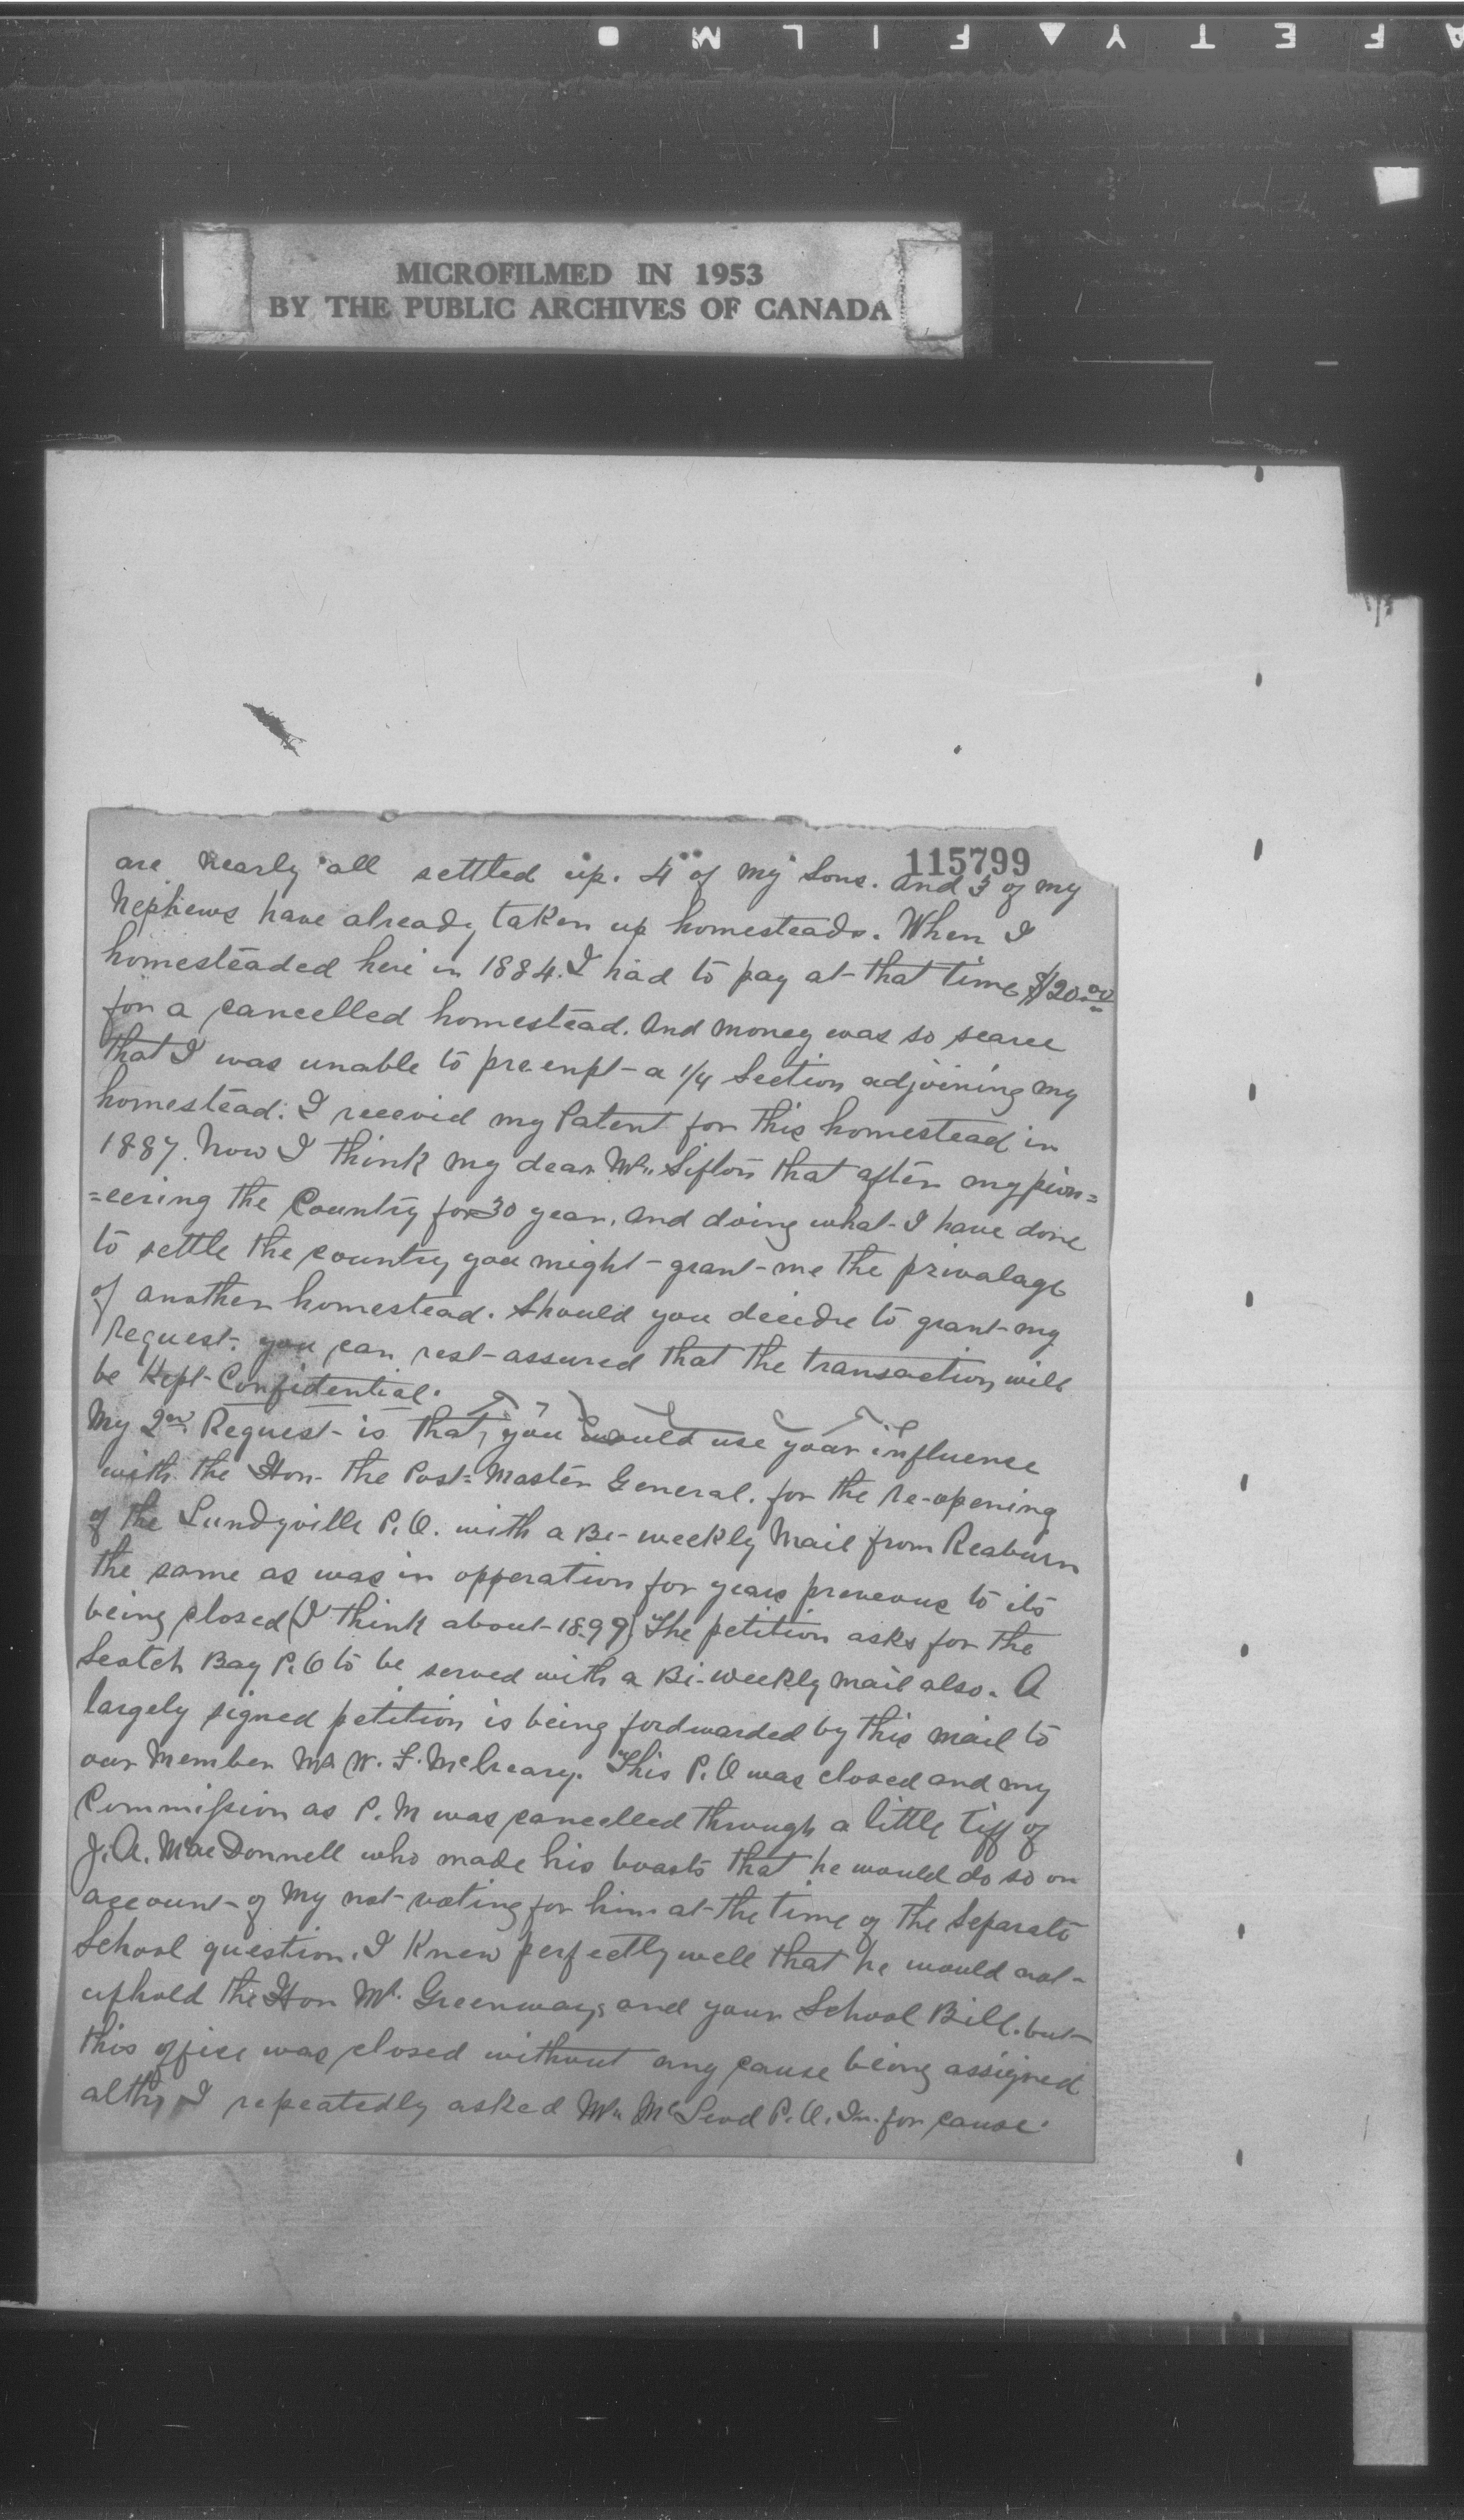 AFETY▲FILM●
MICROFILMED IN 1953
BY THE PUBLIC ARCHIVES OF CANADA
115799
are nearly all settled up. 4 of my Sons. and 3 of my
Nephews have already taken up homesteads. When I
homesteaded here in 1884. I had to pay at that time $120.00
for a cancelled homestead. And money was so scarce
that I was unable to pre-enpt a 1/4 Section adjoining my
homestead. I receevid my Patent for this homestead in
1887. Now I think my dear Mr. Sifton that after my pion=
=eering the Country for 30 year, and doing what I have done
to settle the country you might grant me the privalage
of another homestead. Should you decide to grant my
Request. you can rest assured that the transaction will
be Kept Confidential.
My 2nd Request is that, you would use your influence
with the Hon. the Post=Master General. for the re-opening
of the Lundyville P.O. with a Bi-weekly Mail from Reaburn
the same as was in opperation for years preveous to its
being closed (I think about 1899) The petition asks for the
Scotch Bay P.O to be served with a Bi-weekly mail also. A
largely signed petition is being fordwarded by this mail to
our Member Mr W. F. McCreary. This P.O was closed and my
Commission as P.M was cancelled through a little tiff of
J. A. MacDonnell who made his boasts that he would do so on
account of my not voting for him at the time of the Separate
School question. I Knew perfectly well that he would not
uphold the Hon Mr. Greenways and your School Bill. but
this office was closed without any cause being assigned
altho I repeatedly asked Mr. McLeod P.O. In. for cause.